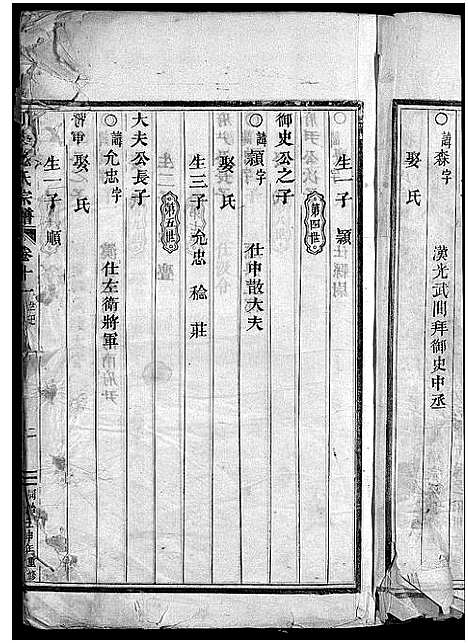 ○諱森字　漢光武間拜御史中丞
娶氏
生一子　潁
第四世
御史公之子
○諱潁字　仕中散大夫
娶氏
生三子　允忠　稔　莊
第五世
大夫公長子
○諱允忠字　漢仕左衛將軍
娶氏
生一子　順
將軍
氏宗譜　卷十一